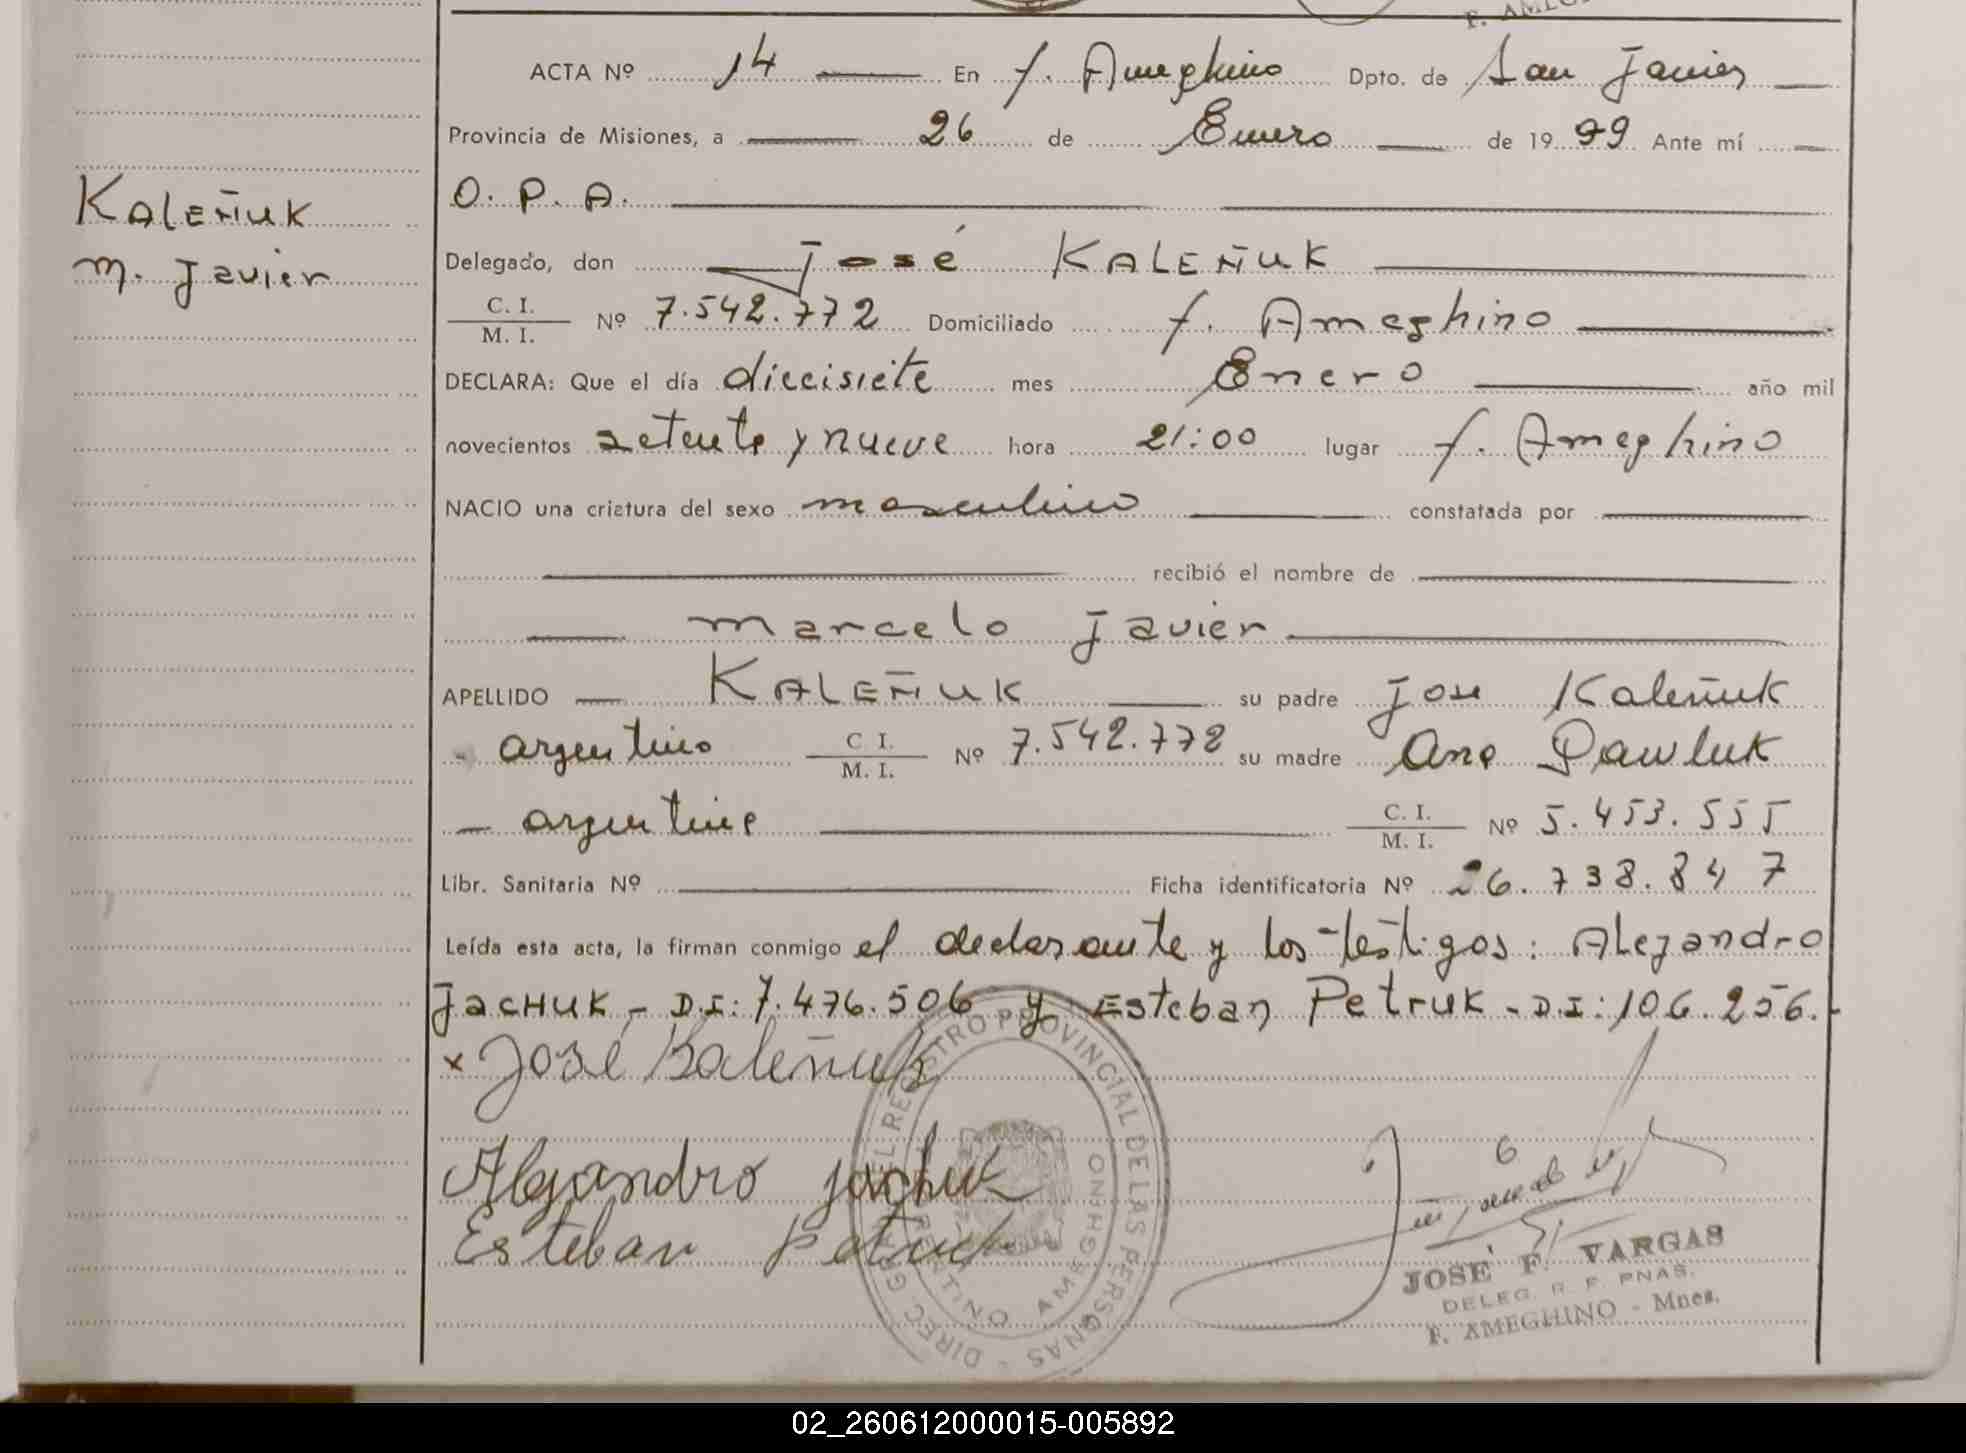 F. AMEGHI
ACTA Nº 14 En F. Ameghino Dpto. de San Javier
Provincia de Misiones, a 26 de Enero de 1999 Ante mí
O. P. A.
Kaleñuk
M. Javier
Delegado, don José KALEÑUK
C. I.
M. I. Nº 7.542.772 Domiciliado F. Ameghino
DECLARA: Que el día diecisiete mes Enero año mil
novecientos setenta y nueve hora 21:00 lugar F. Ameghino
NACIO una criatura del sexo masculino constatada por
recibió el nombre de
Marcelo Javier
APELLIDO KALEÑUK su padre Jose Kaleñuk
argentino C. I. M. I. Nº 7.542.772 su madre Ana Pawluk
argentina C. I. M. I. Nº 5.453.555
Libr. Sanitaria Nº Ficha identificatoria Nº 26.738.847
Leída esta acta, la firman conmigo el declarante y los testigos: Alejandro
JACHUK - D.I: 7.476.506 y Esteban Petruk - D.I: 106.256.-
x José Kaleñuk
Alejandro Jachuk
Esteban Petruk
DIREC. GRAL. DEL REGISTRO PROVINCIAL DE LAS PERSONAS
AMEGHINO
JOSÉ F. VARGAS
DELEG. R. P. PNAS.
F. AMEGHINO - Mnes.
02_260612000015-005892